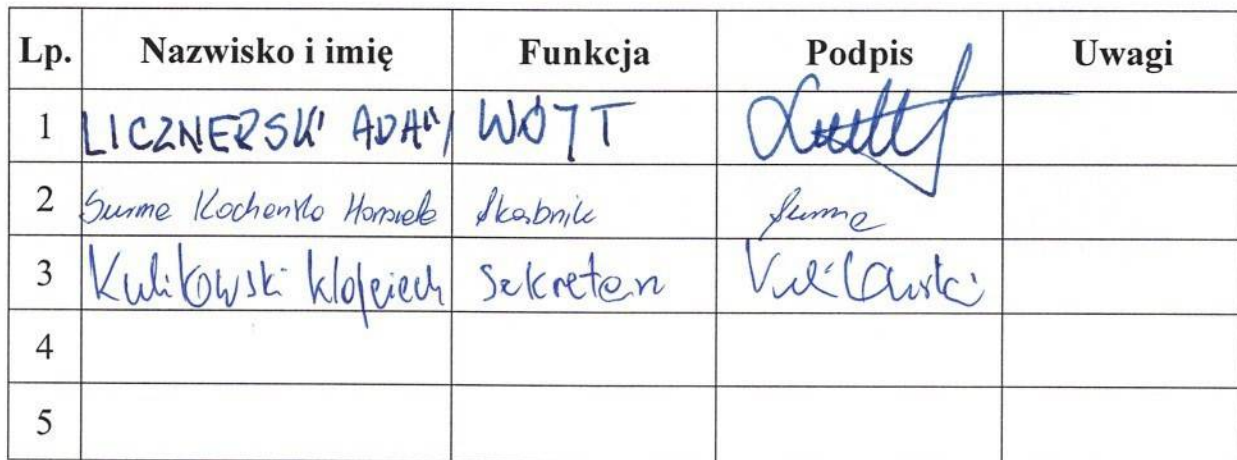 Lp. Nazwisko i imię Funkcja Podpis Uwagi
1 LICZNERSKI ADAM WÓJT
2 Surma Kochańska Skarbnik Surma
3 Kulikowski Wojciech Sekretarz Kulikowski
4
5